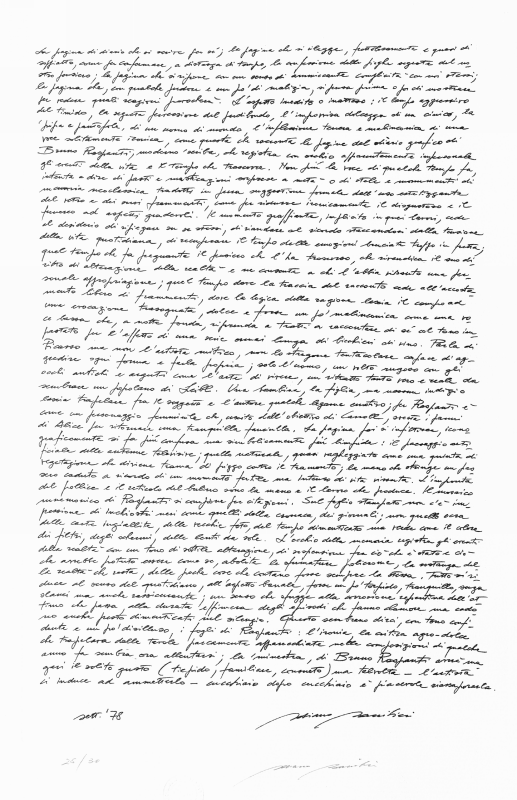 La pagina di diario che si scrive per sé; la pagina che si rilegge, frettolosamente e quasi di
soffiatto, come per confermare, a distanza di tempo, la confessione delle pieghe segrete del no
stro pensiero; la pagina che si ripone con un senso di ammiccante complicità con noi stessi;
la pagina che, con qualche pudore e un po' di malizia, si pensa prima o poi di mostrare
per vedere quali reazioni provocherà. L'aspetto inedito o inatteso: il tempo aggressivo
del timido, la segreta percezione del pudibondo, l'improvvisa dolcezza di un cinico, la
pipa e pantofola, di un uomo di mondo, l'inflessione tenera e malinconica di una
voce solitamente ironica, come questa che racconta le pagine del diario grafico di
Bruno Raspanti, moderno scriba, che registra con occhio apparentemente impersonale
gli eventi della vita e il tempo che trascorre. Non più la voce di qualche tempo fa,
intenta a dire di fasti e mistificazioni sorprese a note o di stele e monumenti di
memoria neoclassica tradotti in pura suggestione formale dall'uso estetizzante
del vetro e dei suoi frammenti, come per ridurre ironicamente il disgustoso e il
funereo ad aspetti gradevoli. Il momento graffiante, implicito in quei lavori, cede
al desiderio di ripiegare su se stessi, di riandare al ricordo staccandosi dalla tensione
della vita quotidiana, di recuperare il tempo delle emozioni bruciate
quel tempo che fa pregnante il pensiero che l'ha trascorso, che rivendica il suo di
ritto di alterazione della realtà e ne consente a chi l'abbia vissuto una per
sonale appropriazione; quel tempo dove la traccia del racconto cede all'accosta
mento libero di frammenti, dove la logica della ragione lascia il campo ad
una evocazione trasognata, dolce e forse un po' malinconica come una vo
ce bassa che, a notte fonda, riprenda a tratti a raccontare di sé col tono im
pastato per l'effetto di una serie ormai lunga di bicchieri di vino. Parla di
Picasso ma non l'artista mitico, non lo stregone tentacolare capace di ag
gredire ogni forma e farla propria; solo l'uomo, un volto rugoso con gli
occhi antichi e arguti come l'arte di vivere, un ritratto tanto vero e reale da
sembrare un popolano di Leibl. Una bambina, la figlia, ma nessun indizio
lascia trapelare fra il soggetto e l'autore qualche legame emotivo; per Raspanti è
come un personaggio femminile che, uscito dall'obiettivo di Carroll, smette i panni
di Alice per ritornare una tranquilla fanciulla. La pagina poi si infittisce, icono
graficamente si fa più confusa ma simbolicamente più limpida: il paesaggio arti
ficiale delle antenne televisive; quello naturale, quasi vagheggiato con una quinta di
vegetazione che diviene trama di pizzo contro il tramonto; la mano che stringe un pas
sero caduto a ricordo di un momento fertile ma intenso di vita vissuta. L'impronta
del pollice e il reticolo del bulino sono la mano e il lavoro che produce. Il mosaico
mnemonico di Raspanti si compone per citazioni. Sul foglio stampato non c'è im
pressione di inchiostri neri come quelli della cronaca, dei giornali; non quello ocra
delle carte ingiallite, delle vecchie foto, del tempo dimenticato ma vede come il colore
dei filtri, degli schermi, delle lenti da sole. L'occhio della memoria registra gli eventi
della realtà con un tono di sottile alterazione, di sospensione fra ciò che è stato e ciò
che avrebbe potuto essere come se, abolite le sfumature policrome, la sostanza del
la realtà che resta, delle poche cose che contano fosse sempre la stessa. Tutto si ri
duce al senso del quotidiano, all'aspetto banale, forse un po' trepido, tranquillo senza
slanci ma anche rassicurante; un senso che sfugge alla corrosione repentina dell'at
timo che passa, alla durata effimera degli episodi che fanno clamore ma cado
no anche presto dimenticati nel silenzio. Questo sembrano dirci, con tono confi
dente e un po' disilluso, i fogli di Raspanti: l'ironia, la critica agro-dolce
che trapelava dalle tavole parcamente apparecchiate nelle composizioni di qualche
anno fa sembra ora allentarsi; la minestra, di Bruno Raspanti avrà ma
gari il solito gusto (tiepido, familiare, consueto) ma talvolta – l'artista
ci induce ad ammetterlo – cucchiaio dopo cucchiaio è piacevole riassaporarla.
sett. '78
26/60